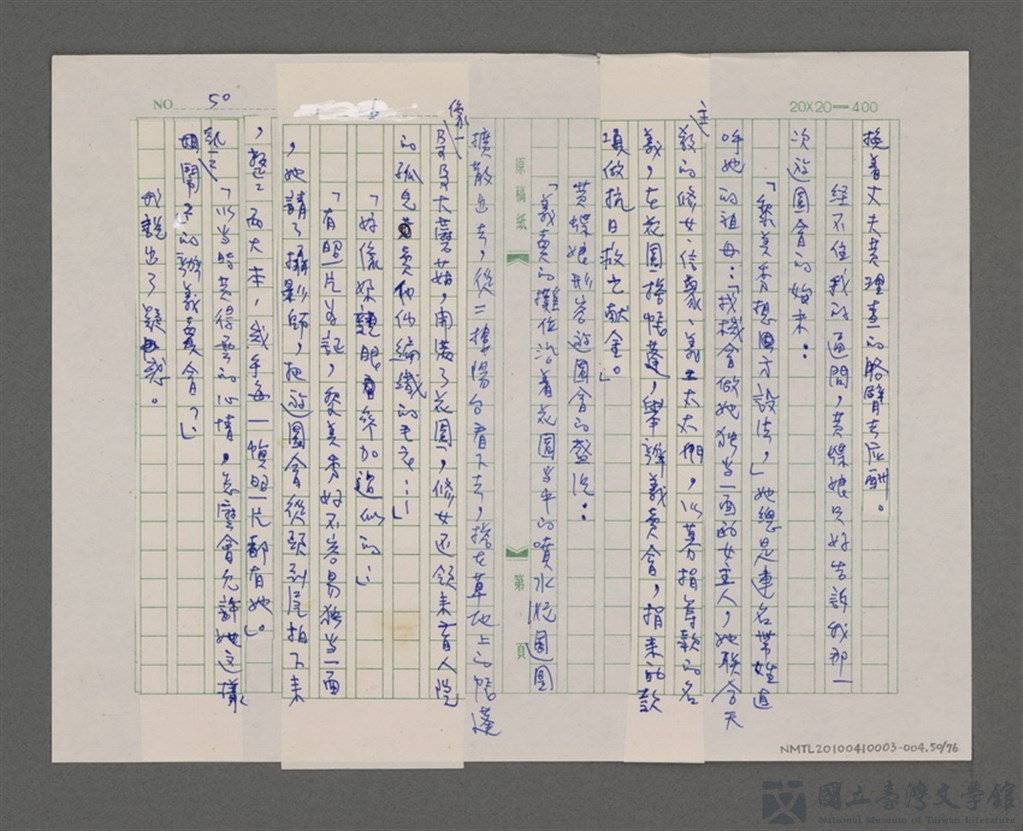 NO 50
20X20=400
挽着丈夫黃理查的胳臂去应酬。
經不住我的逼問,黃蝶娘只好告訴我那一
次遊園會的始末:
「黎美秀想盡方設法,」她總是連名帶姓直
呼她的祖母:「找機會做她独当一面的女主人,她联合天
主教的修女、信眾、富太太們,以募捐籌款的名
義,在花園搭帳蓬,舉辦義賣會,捐来的款
項做抗日救亡献金。」
黃蝶娘形容遊園會的盛況:
「義賣的攤位沿着花園当中的噴水池團團
原稿紙
第 頁
擴散出去,從二樓陽台看下去,搭在草地上的帳蓬
像一朵朵大蘑菇,開滿了花園,修女还領来盲人院
的孤兒賣他們編織的毛衣……」
「好像你親眼看
「有照片为証,黎美秀好不容易独当一面
,她請了攝影師,把遊園會從頭到尾拍下来
,整整兩大本,幾乎每一幀照片都有她。」
「以当時黃得雲的心情,怎麼會允許她这樣
的辦義賣會?」
我說出了疑惑。
NMTL20100410003-004.50/76
國立臺灣文學館
National Museum of Taiwan Literature